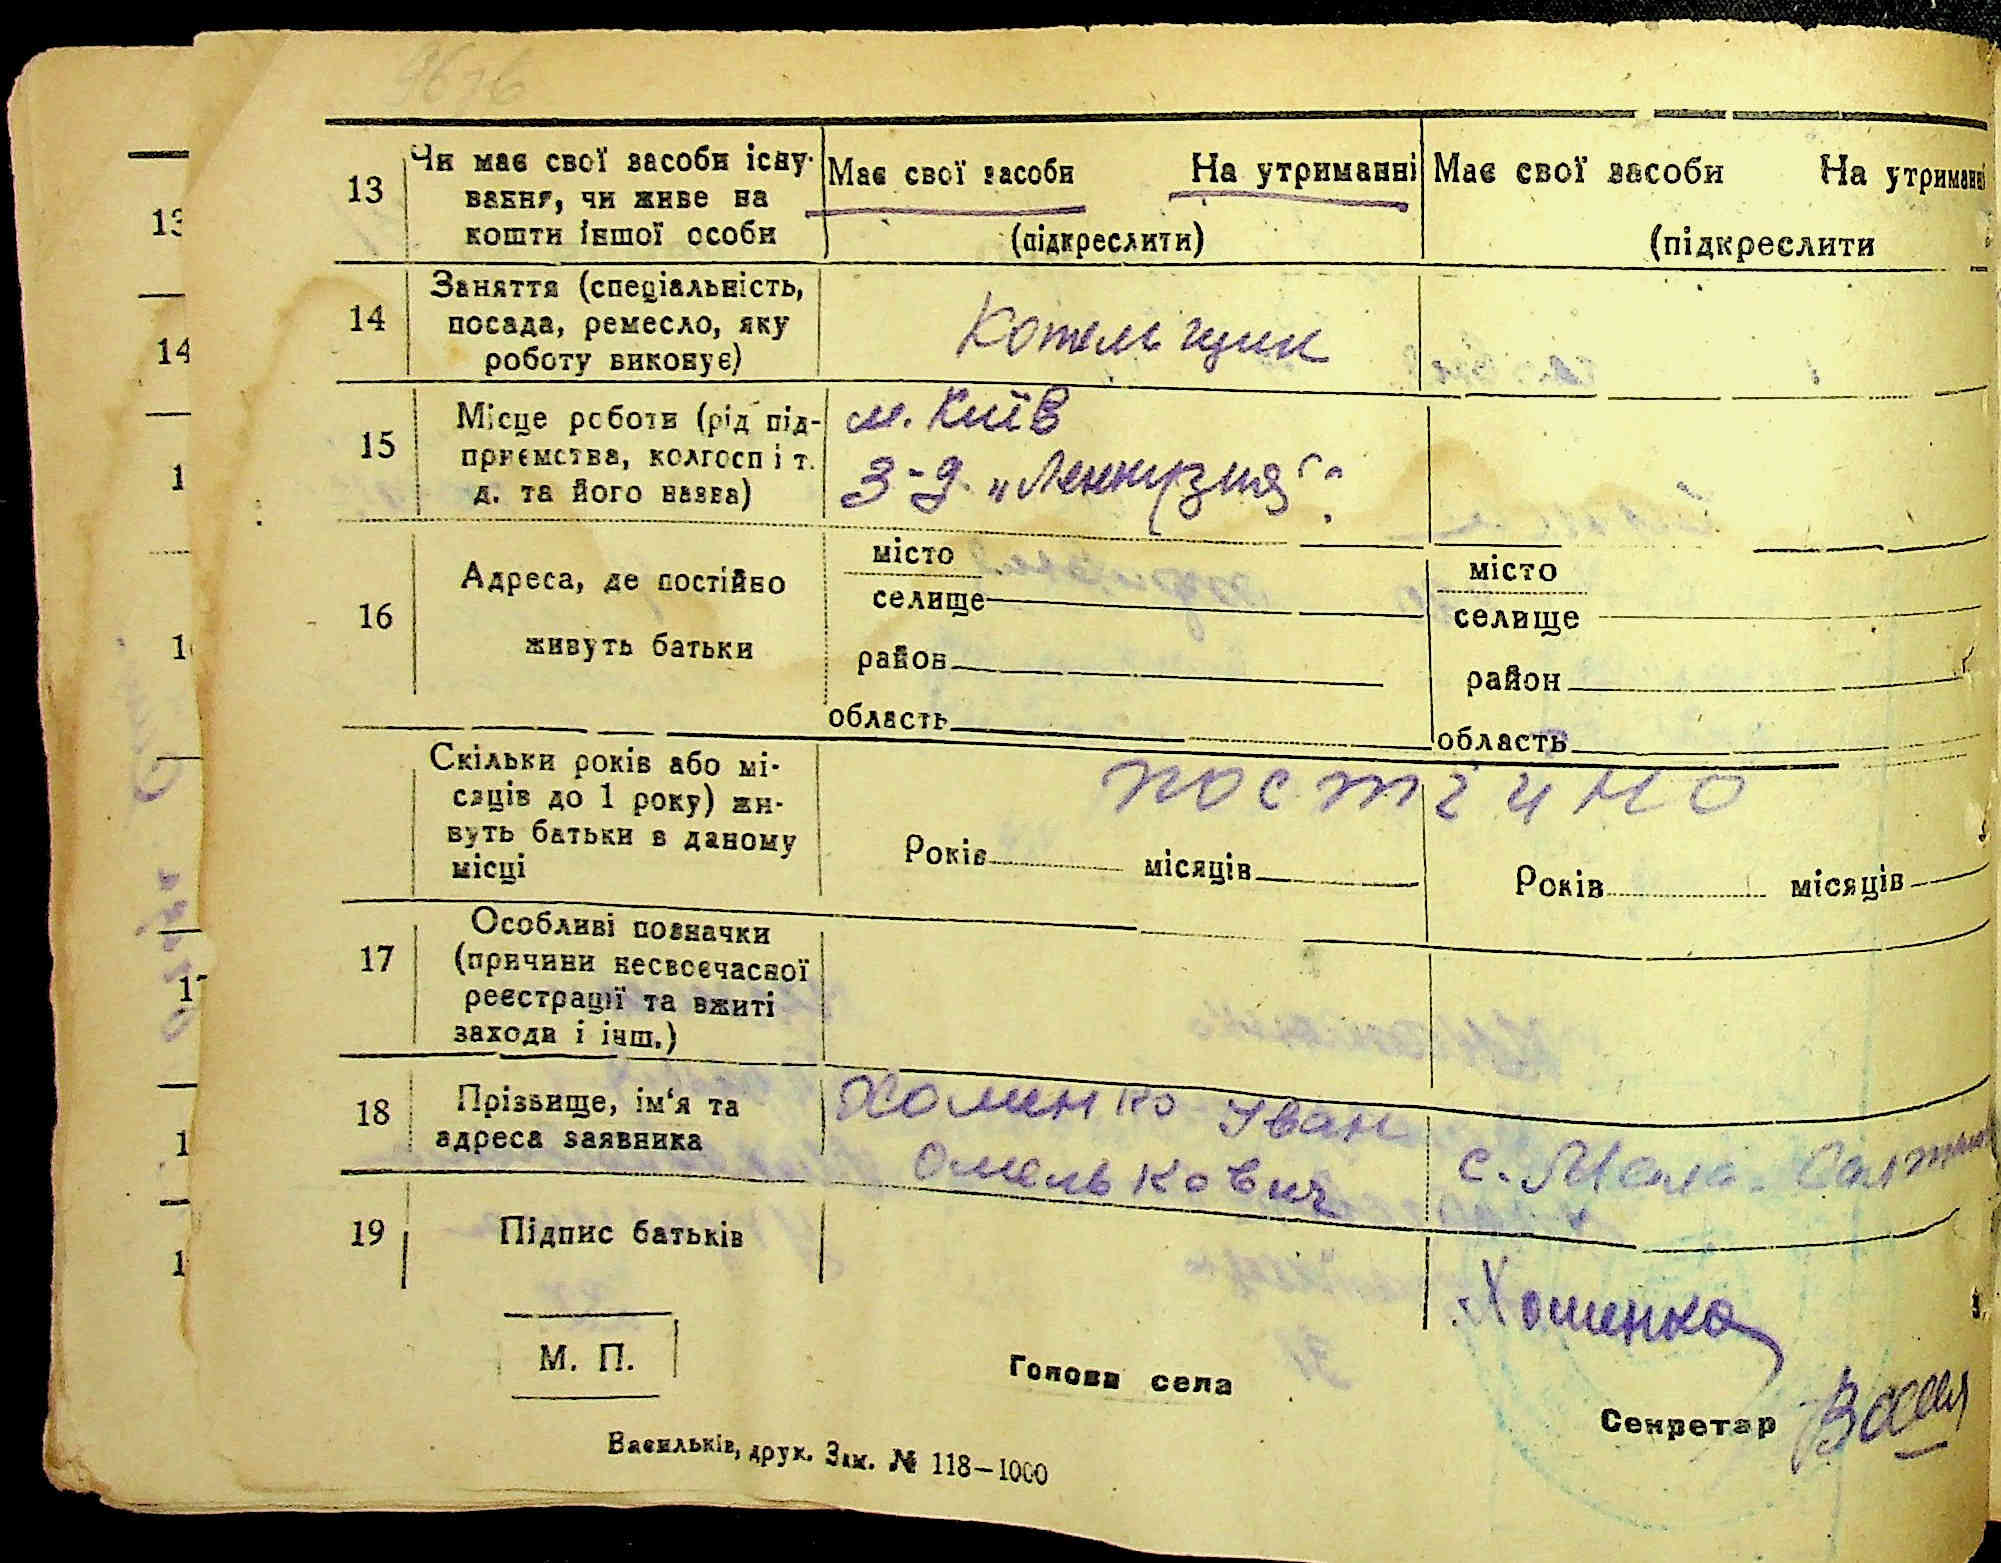 9676
13
Чи має свої засоби існу-
вання, чи живе на
кошти іншої особи
Має свої засоби На утриманні
(підкреслити)
Має свої засоби На утриманні
(підкреслити
14
Заняття (спеціальність,
посада, ремесло, яку
роботу виконує)
Котельщик
15
Місце роботи (рід під-
приємства, колгосп і т.
д. та його назва)
м. Київ
З-д. „Ленкузня".
16
Адреса, де постійно
живуть батьки
місто
селище
район
область
місто
селище
район
область
Скільки років або мі-
сяців до 1 року) жи-
вуть батьки в даному
місці
постійно
Років місяців
Років місяців
17
Особливі позначки
(причини несвоєчасної
реєстрації та вжиті
заходи і інш.)
18
Прізвище, ім'я та
адреса заявника
Хоменко Іван
Омелькович
с. Мала-
19
Підпис батьків
Хоменко
М. П.
Голова села
Секретар
Васильків, друк. Зам. № 118—1000
13
14
1
1
17
1
1